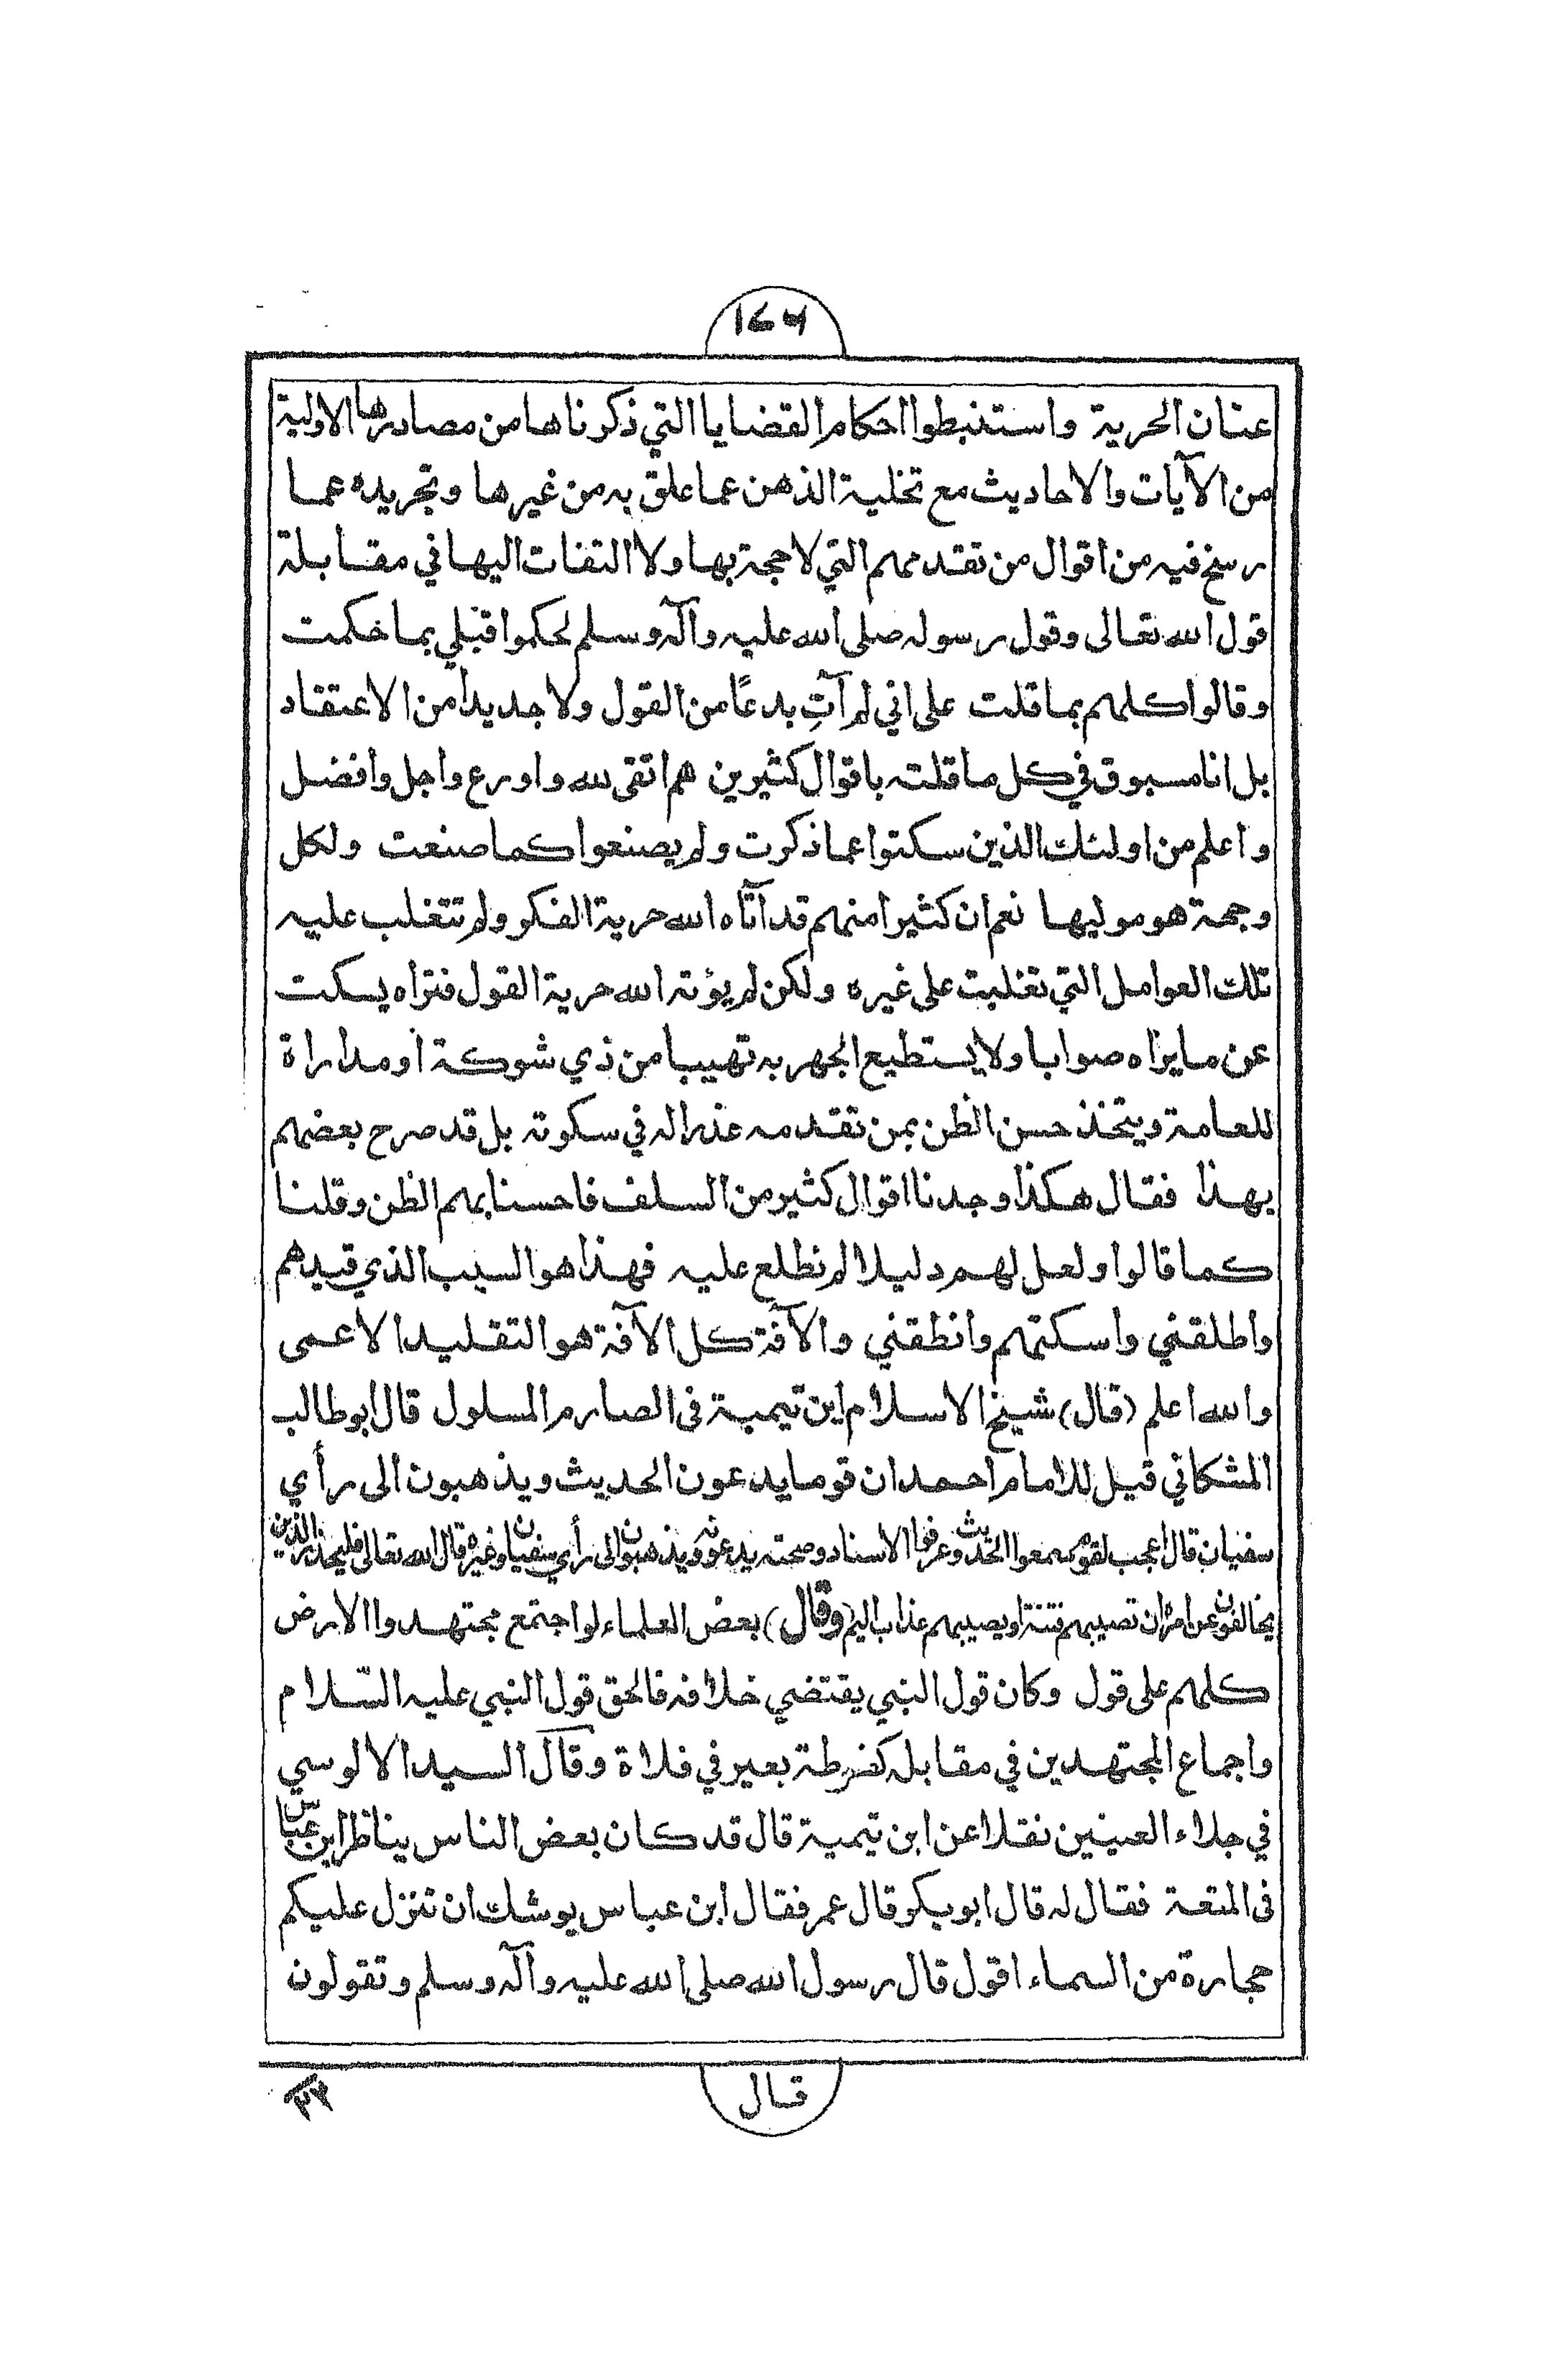 ١٧٦
عنان الحرية واستنبطوا احكام القضايا التي ذكرناها من مصادرها الاولية
من الآيات والاحاديث مع تخلية الذهن عما علق به من غيرها وتجريده عما
رسخ فيه من اقوال من تقدمهم التي لا حجة بها ولا التفات اليها في مقابلة
قول الله تعالى وقول رسوله صلى الله عليه وآله وسلم لحكموا قبلي بما حكمت
وقالوا كلهم بما قلت على اني لم آتِ بدعًا من القول ولا جديدا من الاعتقاد
بل انا مسبوق في كل ما قلته باقوال كثيرين هم اتقى لله واورع واجل وافضل
واعلم من اولئك الذين سكتوا عما ذكرت ولم يصنعوا كما صنعت ولكل
وجهة هو موليها نعم ان كثيرا منهم قد آتاه الله حرية الفكر ولم تتغلب عليه
تلك العوامل التي تغلبت على غيره ولكن لم يؤته الله حرية القول فتراه يسكت
عن ما يراه صوابا ولا يستطيع الجهر به تهيبا من ذي شوكة او مداراة
للعامة ويتخذ حسن الظن بمن تقدمه عذرا له في سكوته بل قد صرح بعضهم
بهذا فقال هكذا وجدنا اقوال كثير من السلف فاحسنا بهم الظن وقلنا
كما قالوا ولعل لهم دليلا لم نطلع عليه فهذا هو السبب الذي قيدهم
واطلقني واسكتهم وانطقني والآفة كل الآفة هو التقليد الاعمى
والله اعلم (قال) شيخ الاسلام ابن تيمية فى الصارم المسلول قال ابو طالب
المشكاني قيل للامام احمد ان قوما يدعون الحديث ويذهبون الى رأي
سفيان قال اعجب لقوم سمعوا الحديث وعرفوا الاسناد وصحته يدعونه ويذهبون الى رأي سفيان وغيره قال الله تعالى فليحذر الذين
يخالفون عن امره ان تصيبهم فتنة او يصيبهم عذاب اليم (وقال) بعض العلماء لو اجتمع مجتهدوا الارض
كلهم على قول وكان قول النبي يقتضي خلافه فالحق قول النبي عليه السّلام
واجماع المجتهدين في مقابله كضرطة بعير في فلاة وقال السيد الالوسي
في جلاء العينين نقلا عن ابن تيمية قال قد كان بعض الناس يناظر ابن عباس
فى المتعة فقال له قال ابو بكر وقال عمر فقال ابن عباس يوشك ان تنزل عليكم
حجارة من السماء اقول قال رسول الله صلى الله عليه وآله وسلم وتقولون
قال